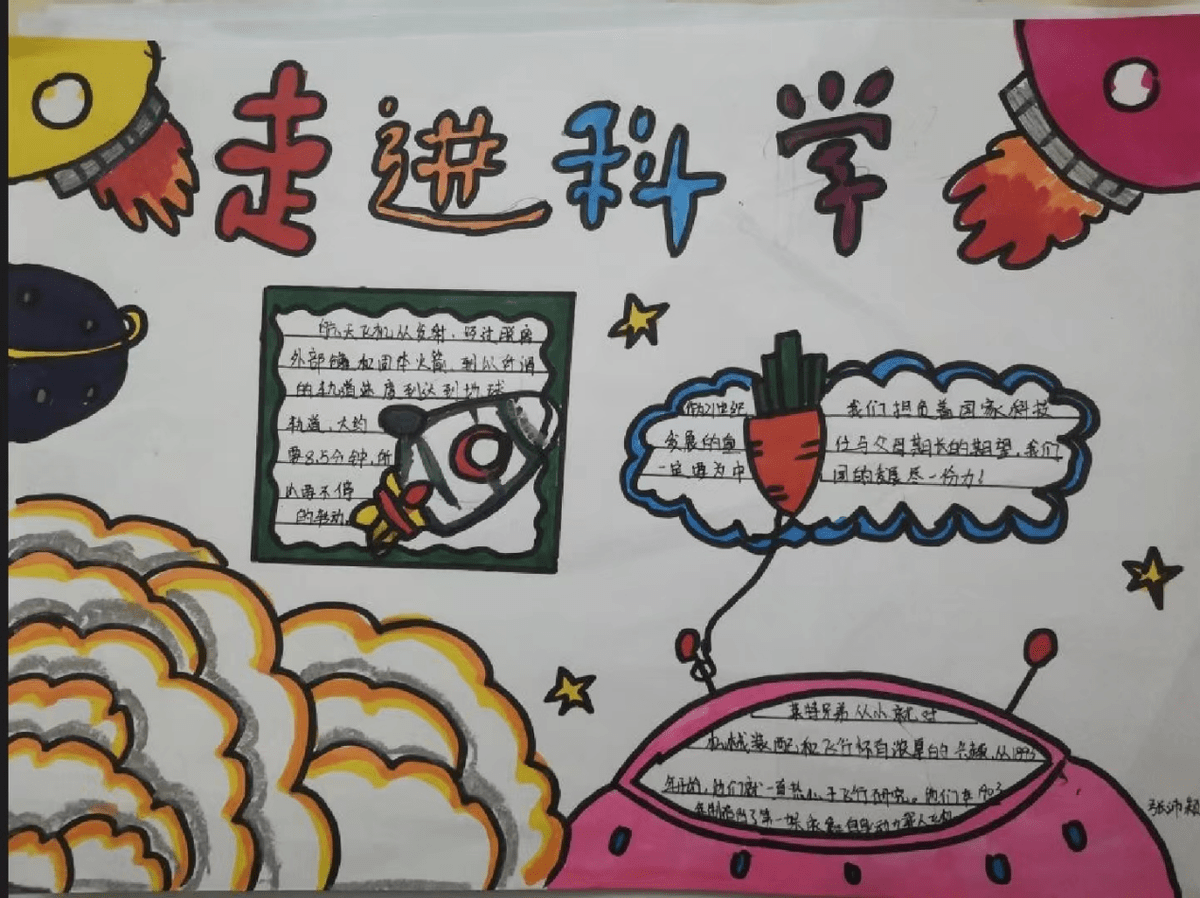 走进科学
航天飞机从发射,经过脱离
外部储 和固体火箭,到以所谓
的轨道速度到达到地球
轨道,大约
要8.5分钟,所
以要不停
的转动。
21世纪 我们担负着国家科技
发展的 任与父母期长的期望,我们
一定要为中 国的发展尽一份力!
莱特兄弟从小就对
机械装配和飞行怀有浓厚的兴趣,从1893
年开始,他们就一直热 于飞行研究。他们在1903
年制造 了第一架 自 动力载人飞机
张沛颖